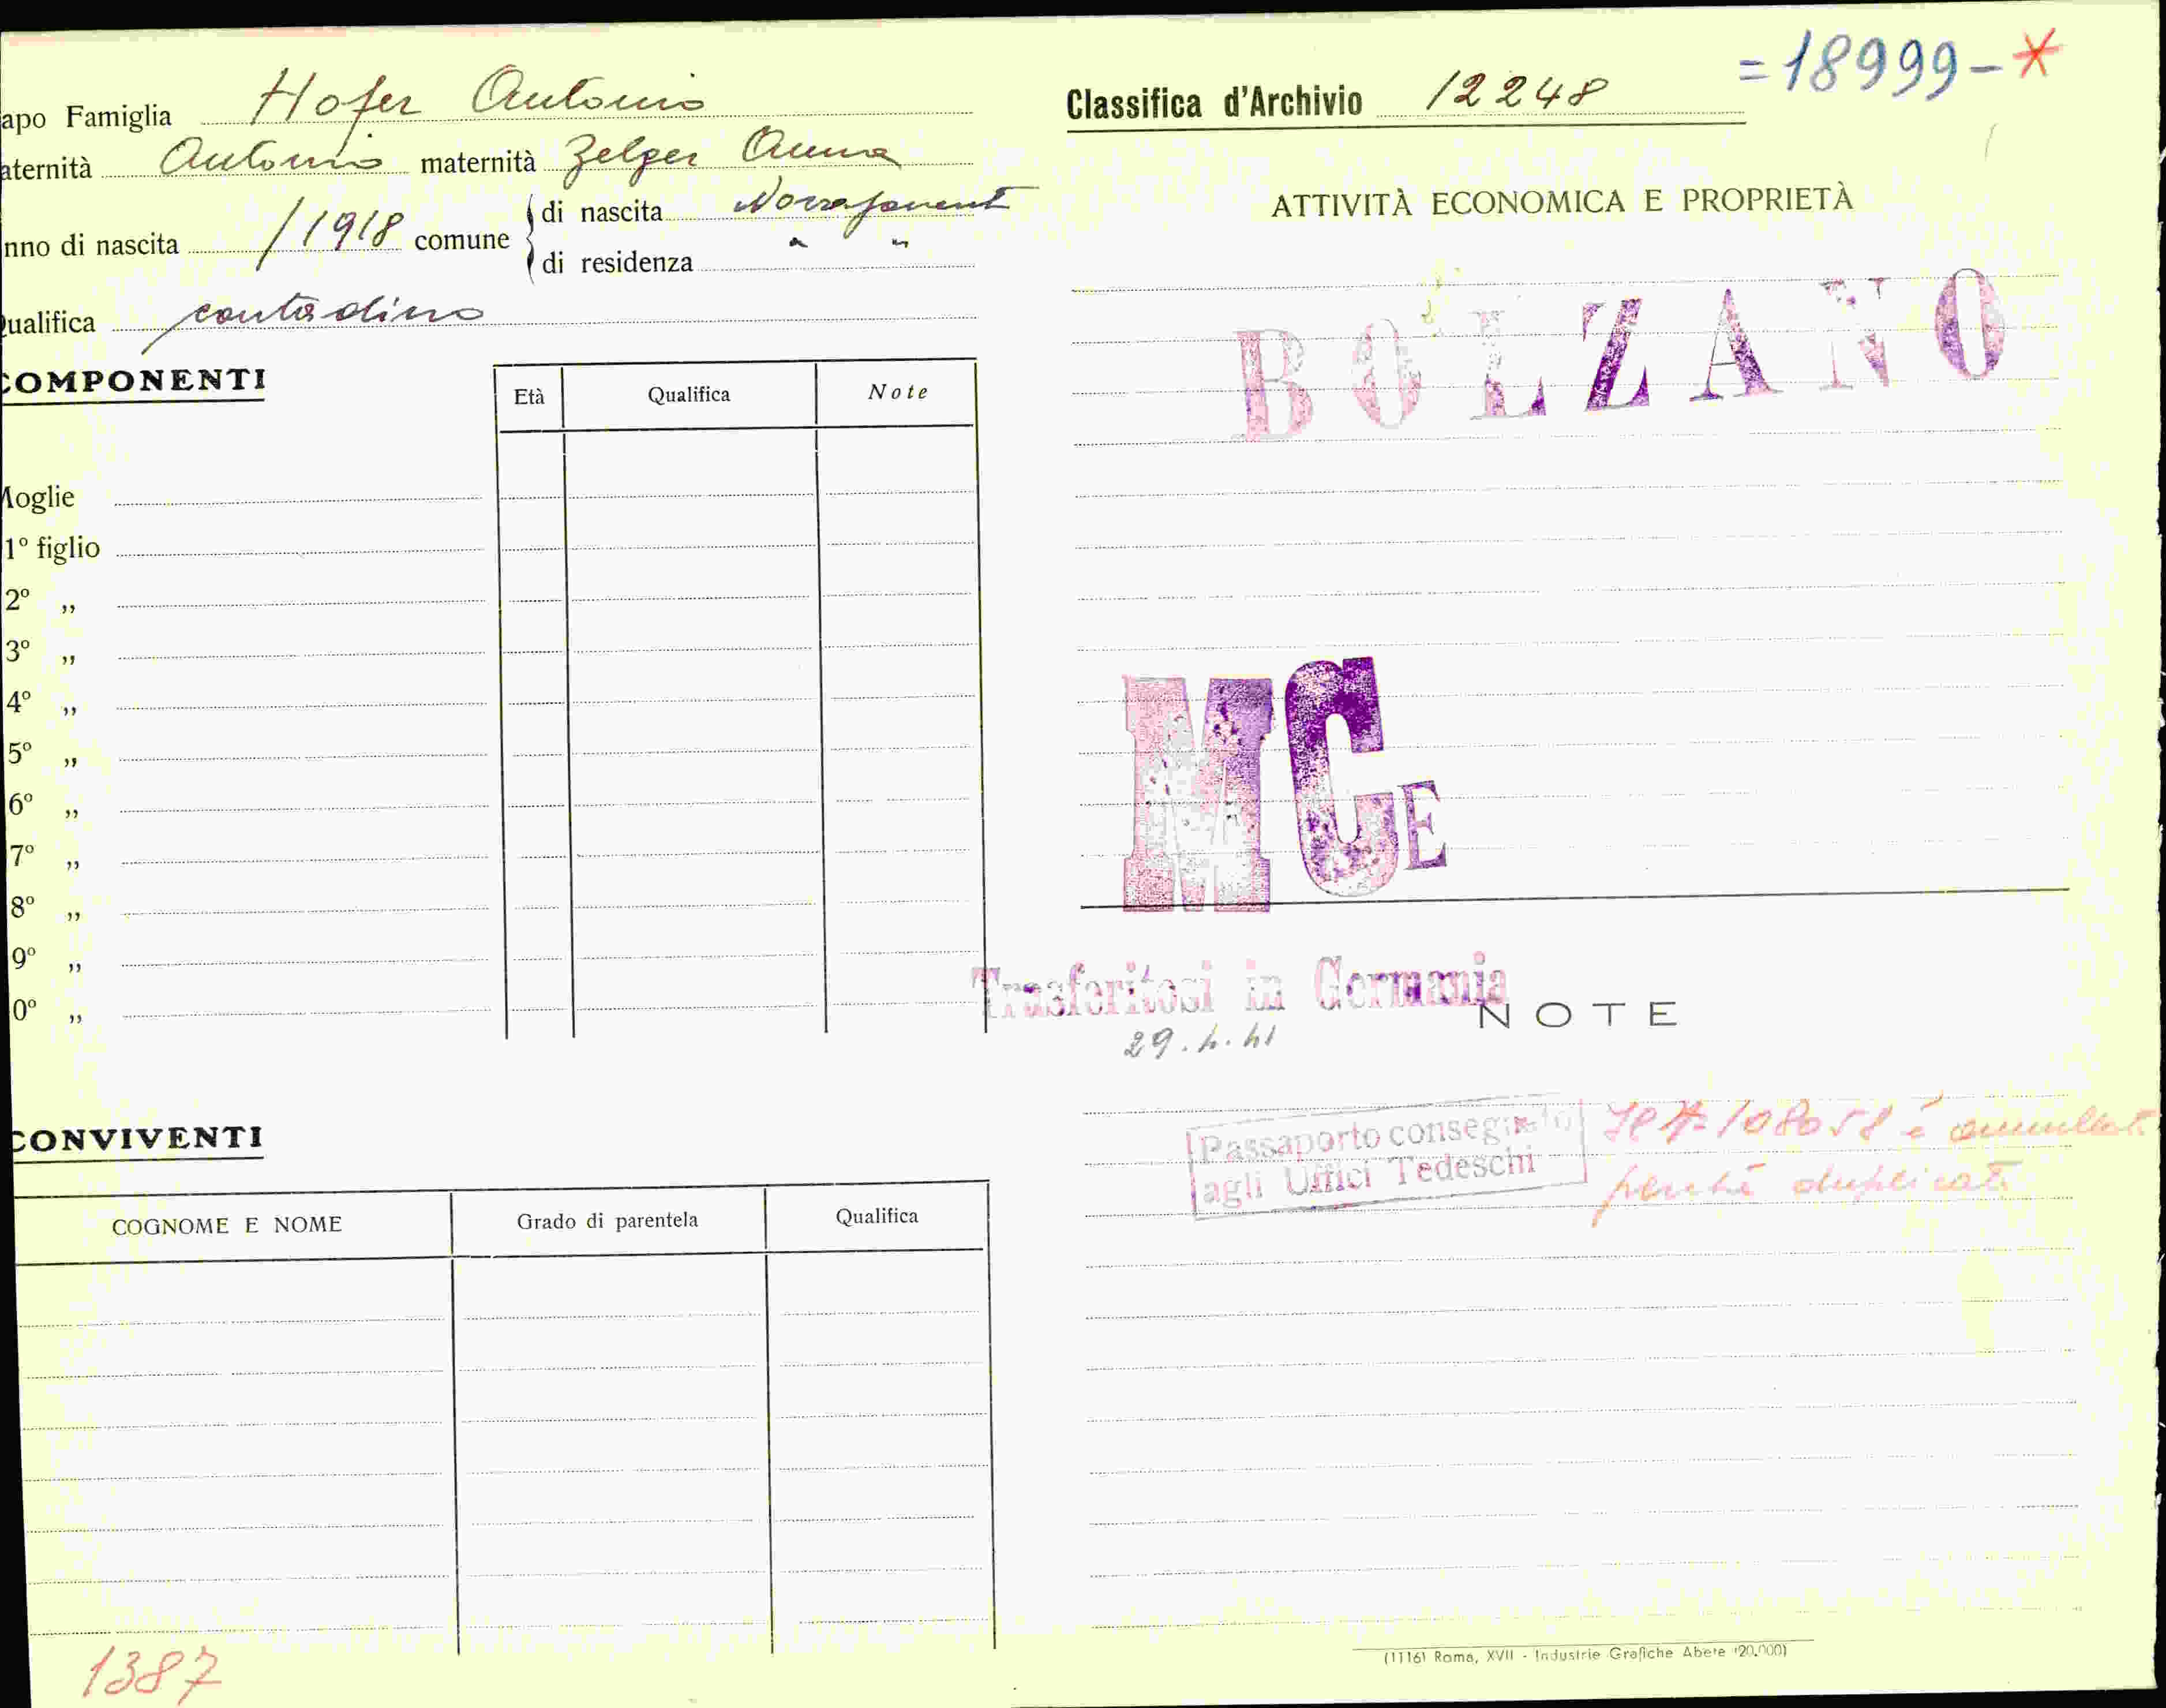 apo Famiglia Hofer Antonio
aternità Antonio maternità Zelger Anna
nno di nascita /1918 comune di nascita Novaponente
di residenza " "
ualifica contadino
COMPONENTI
Età Qualifica Note
Moglie
1º figlio
2º ,,
3º ,,
4º ,,
5º ,,
6º ,,
7º ,,
8º ,,
9º ,,
0º ,,
CONVIVENTI
COGNOME E NOME Grado di parentela Qualifica
1387
=18999-*
Classifica d'Archivio 12248
ATTIVITÀ ECONOMICA E PROPRIETÀ
BOLZANO
MCE
Trasferitosi in Germania
NOTE
29.4.41
Passaporto consegnato
agli Uffici Tedeschi
108058 è annullato
perché duplicato
(1116) Roma, XVII - Industrie Grafiche Abete (20.000)